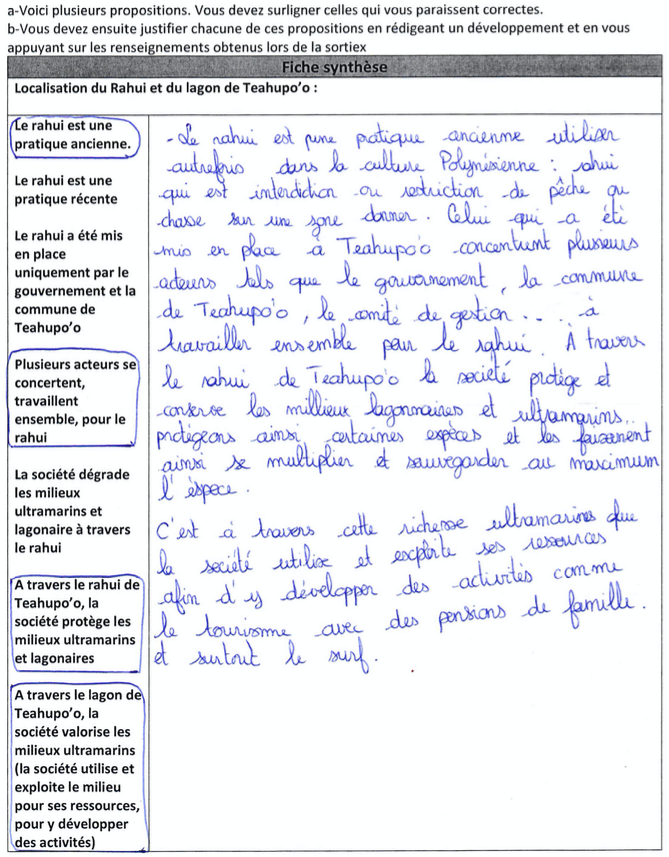 a-Voici plusieurs propositions. Vous devez surligner celles qui vous paraissent correctes.
b-Vous devez ensuite justifier chacune de ces propositions en rédigeant un développement et en vous
appuyant sur les renseignements obtenus lors de la sortiex
Fiche synthèse
Localisation du Rahui et du lagon de Teahupo'o :
Le rahui est une
pratique ancienne.
Le rahui est une
pratique récente
Le rahui a été mis
en place
uniquement par le
gouvernement et la
commune de
Teahupo'o
Plusieurs acteurs se
concertent,
travaillent
ensemble, pour le
rahui
La société dégrade
les milieux
ultramarins et
lagonaire à travers
le rahui
A travers le rahui de
Teahupo'o, la
société protège les
milieux ultramarins
et lagonaires
A travers le lagon de
Teahupo'o, la
société valorise les
milieux ultramarins
(la société utilise et
exploite le milieu
pour ses ressources,
pour y développer
des activités)
- Le rahui est une pratique ancienne utiliser
autrefois dans la culture Polynésienne : rahui
qui est interdiction ou restriction de pêche ou
chasse sur une zone donner. Celui qui a été
mis en place à Teahupo'o concentrent plusieurs
acteurs tels que le gouvernement, la commune
de Teahupo'o, le comité de gestion... à
travailler ensemble pour le rahui. À travers
le rahui de Teahupo'o la société protège et
conserve les millieux lagonnaires et ultramarins..
protégeons ainsi certaines espèces et les faisaient
ainsi se multiplier et sauvegarder au maximum
l'éspece.
C'est à travers cette richesse ultramarines que
la société utilise et exploite ses ressources
afin d'y développer des activités comme
le tourisme avec des pensions de famille.
et surtout le surf.